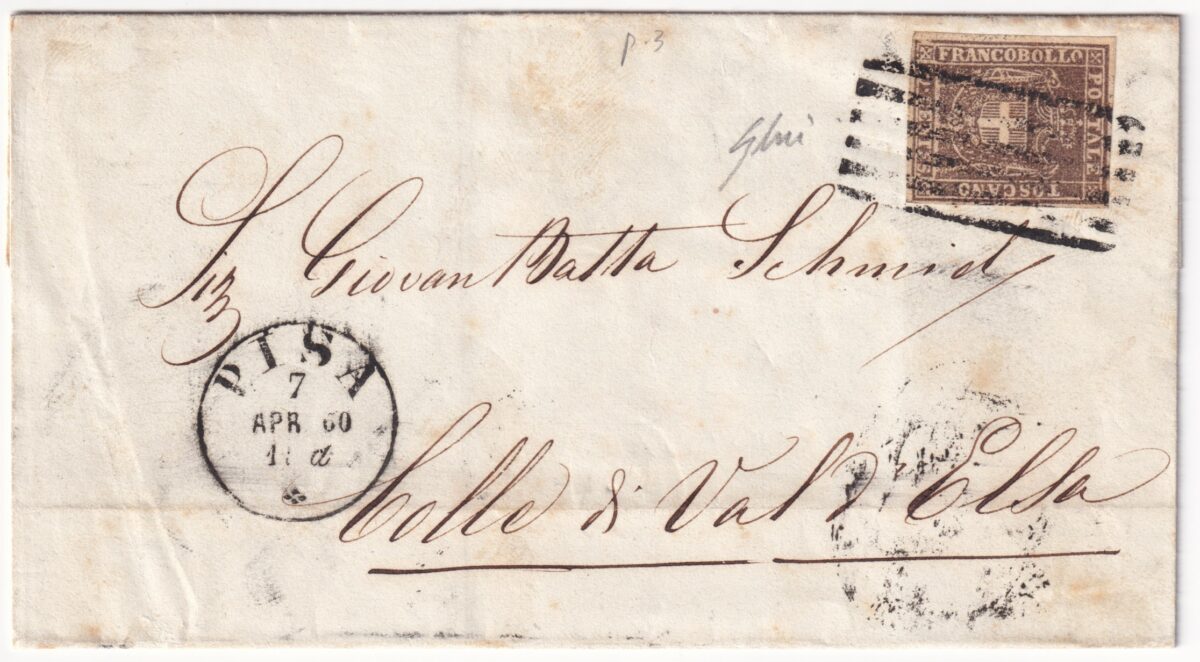 p. 3
FRANCOBOLLO
POSTALE
TOSCANO
Sig Giovan Batta Schmid
PISA
7
APR 60
Colle di Val d'Elsa